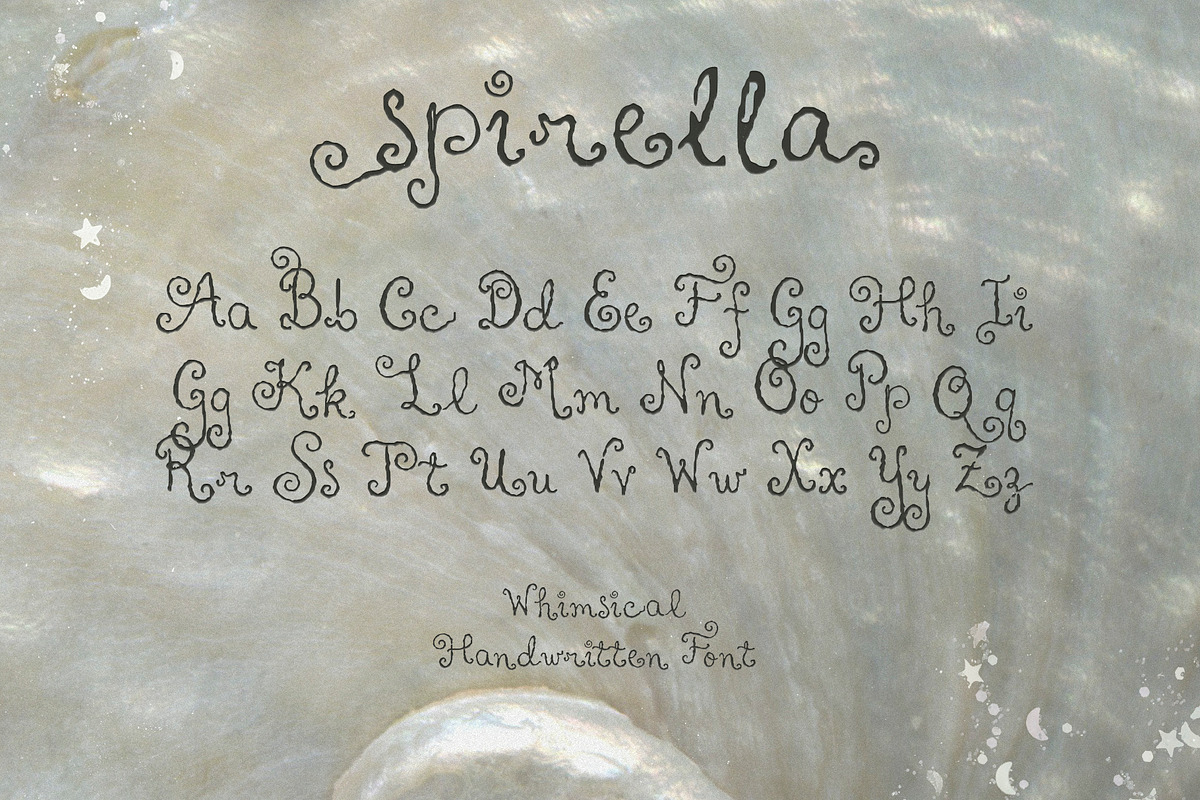 spirella
Aa Bb Cc Dd Ee Ff Gg Hh Ii
Gg Kk Ll Mm Nn Oo Pp Qq
Rr Ss Tt Uu Vv Ww Xx Yy Zz
Whimsical
Handwritten Font